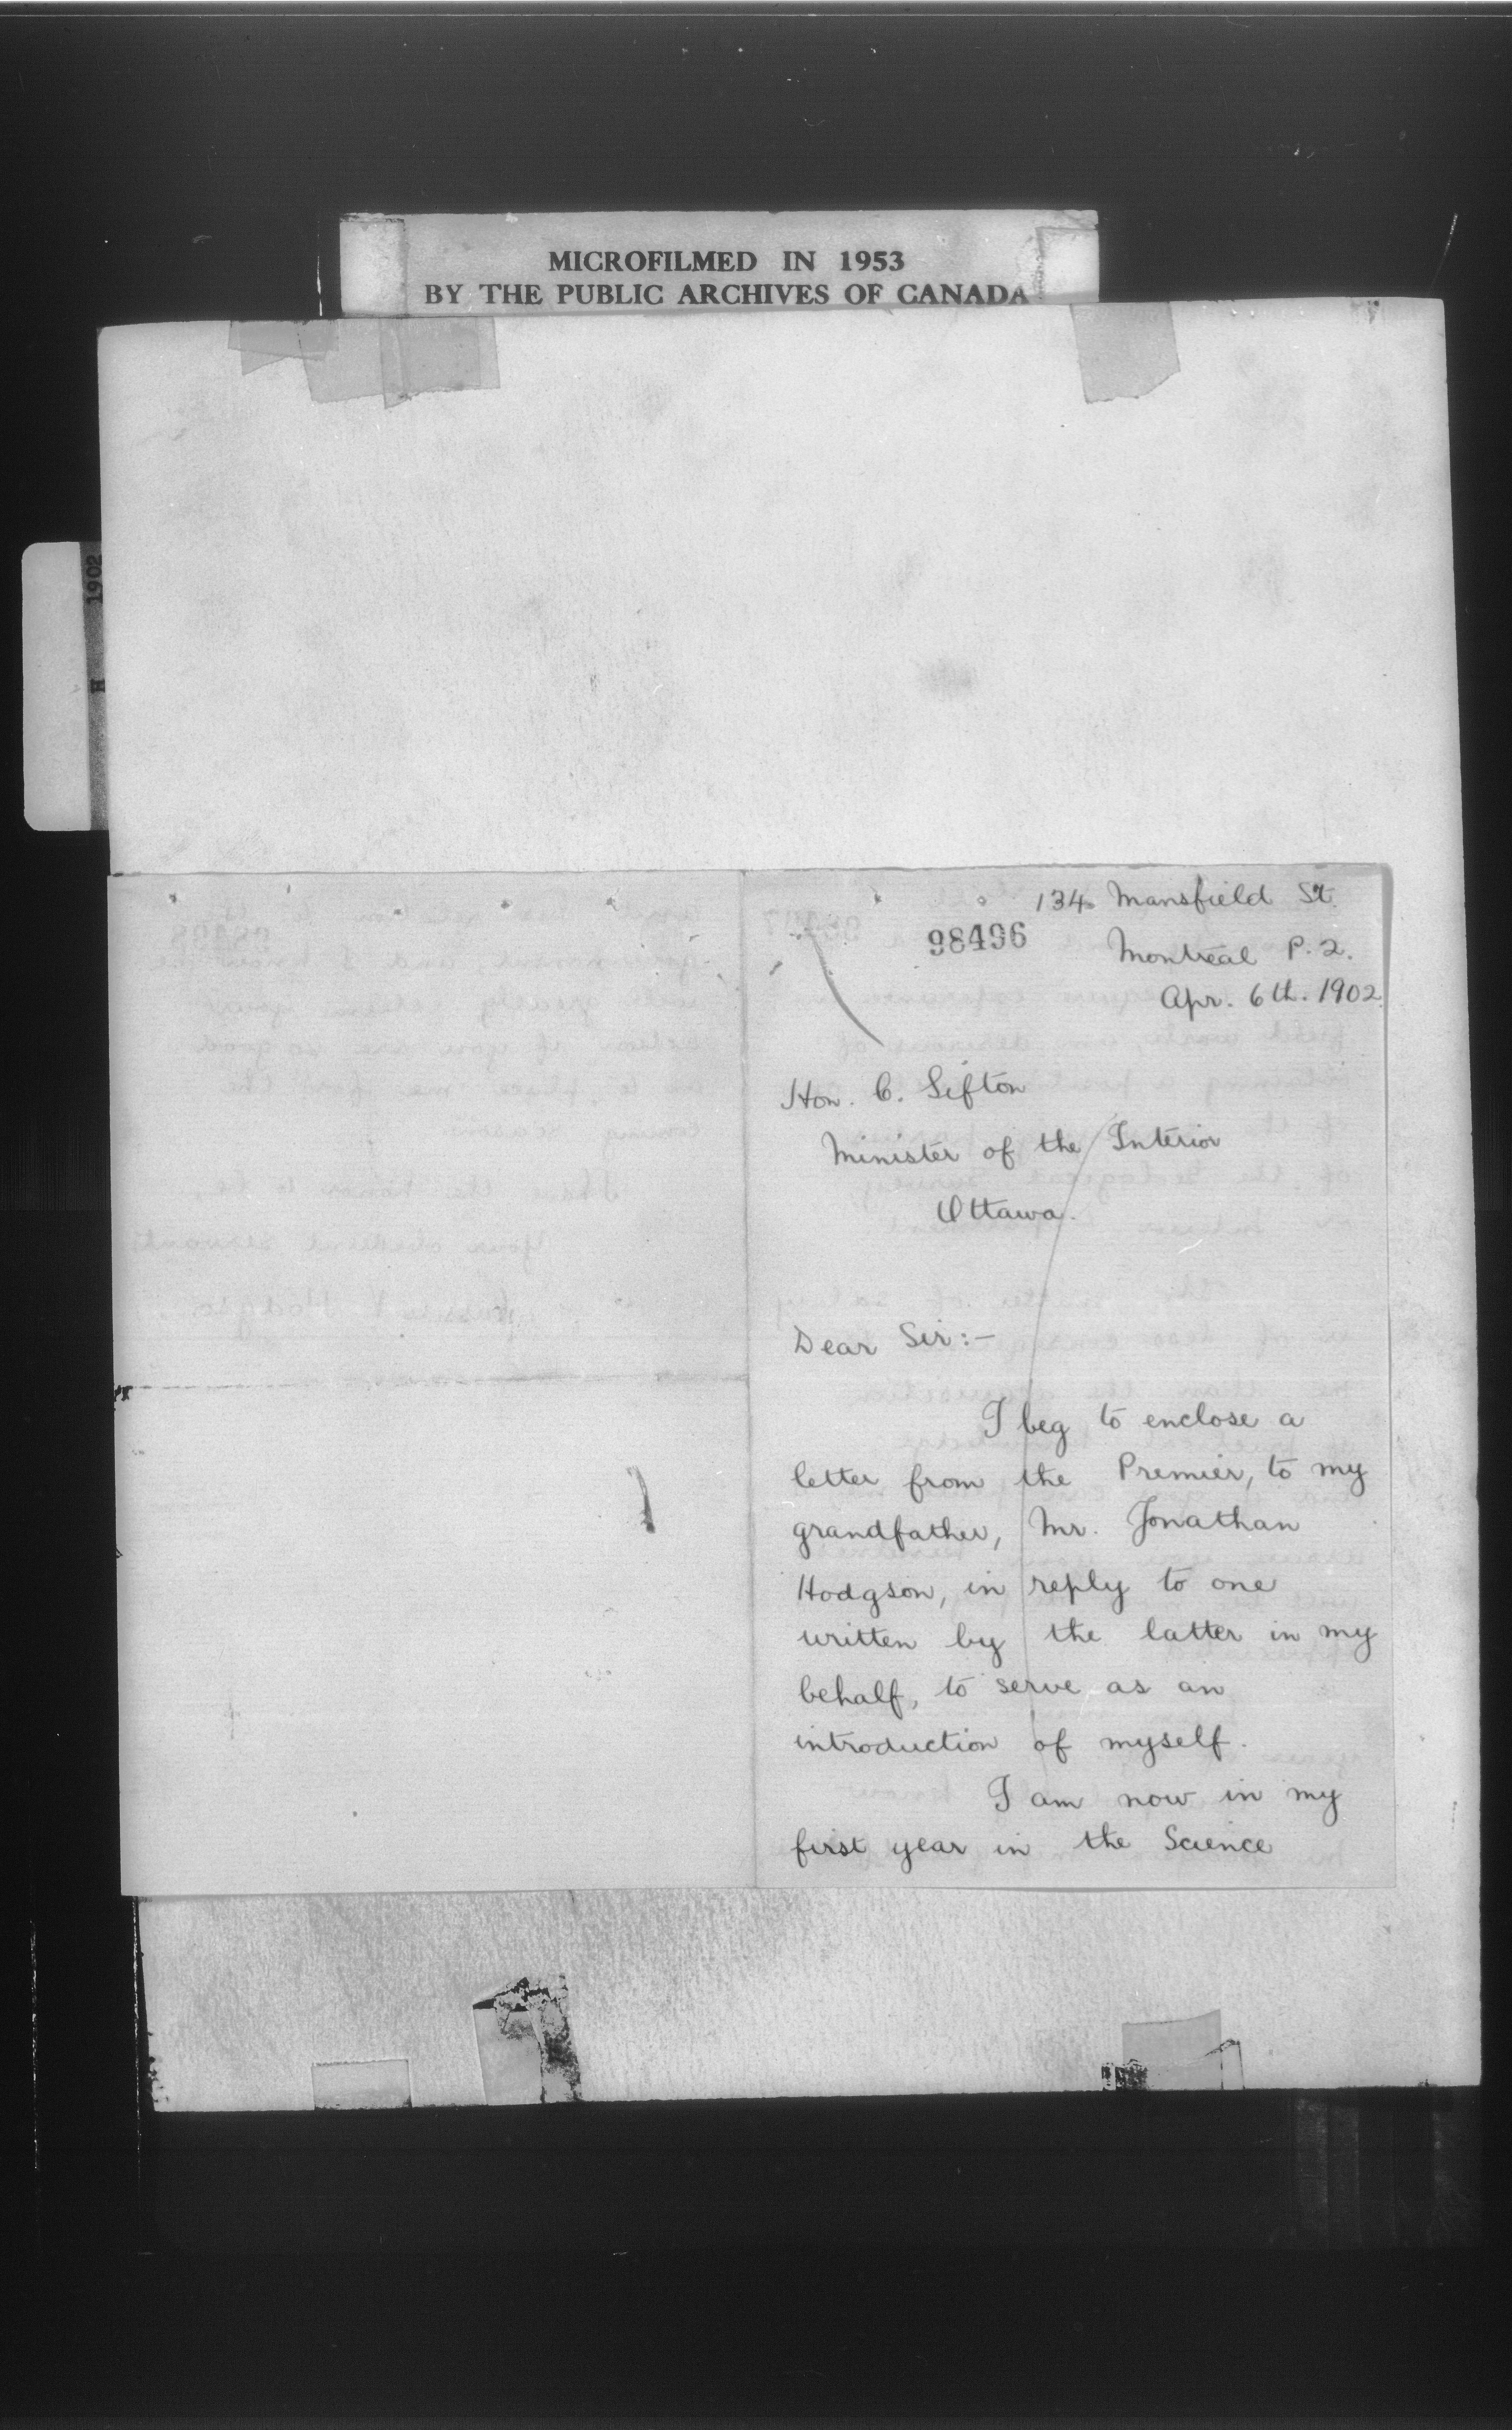 MICROFILMED IN 1953
BY THE PUBLIC ARCHIVES OF CANADA
H 1902
134 Mansfield St.
98496
Montreal P.Q.
Apr. 6th. 1902.
Hon. C. Sifton
Minister of the Interior
Ottawa.
Dear Sir:—
I beg to enclose a
letter from the Premier, to my
grandfather, Mr. Jonathan
Hodgson, in reply to one
written by the latter in my
behalf, to serve as an
introduction of myself.
I am now in my
first year in the Science